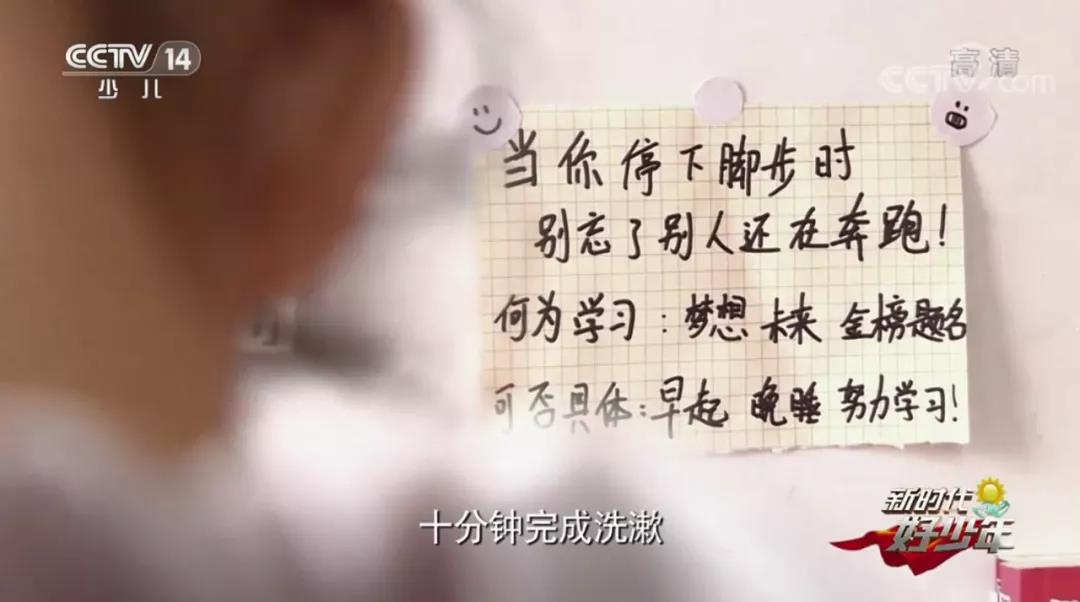 CCTV 14
少儿
高清
CCTV.com
当你停下脚步时
别忘了别人还在奔跑!
何为学习:梦想 未来 金榜题名
可否具体:早起 晚睡 努力学习!
十分钟完成洗漱
新时代
好少年